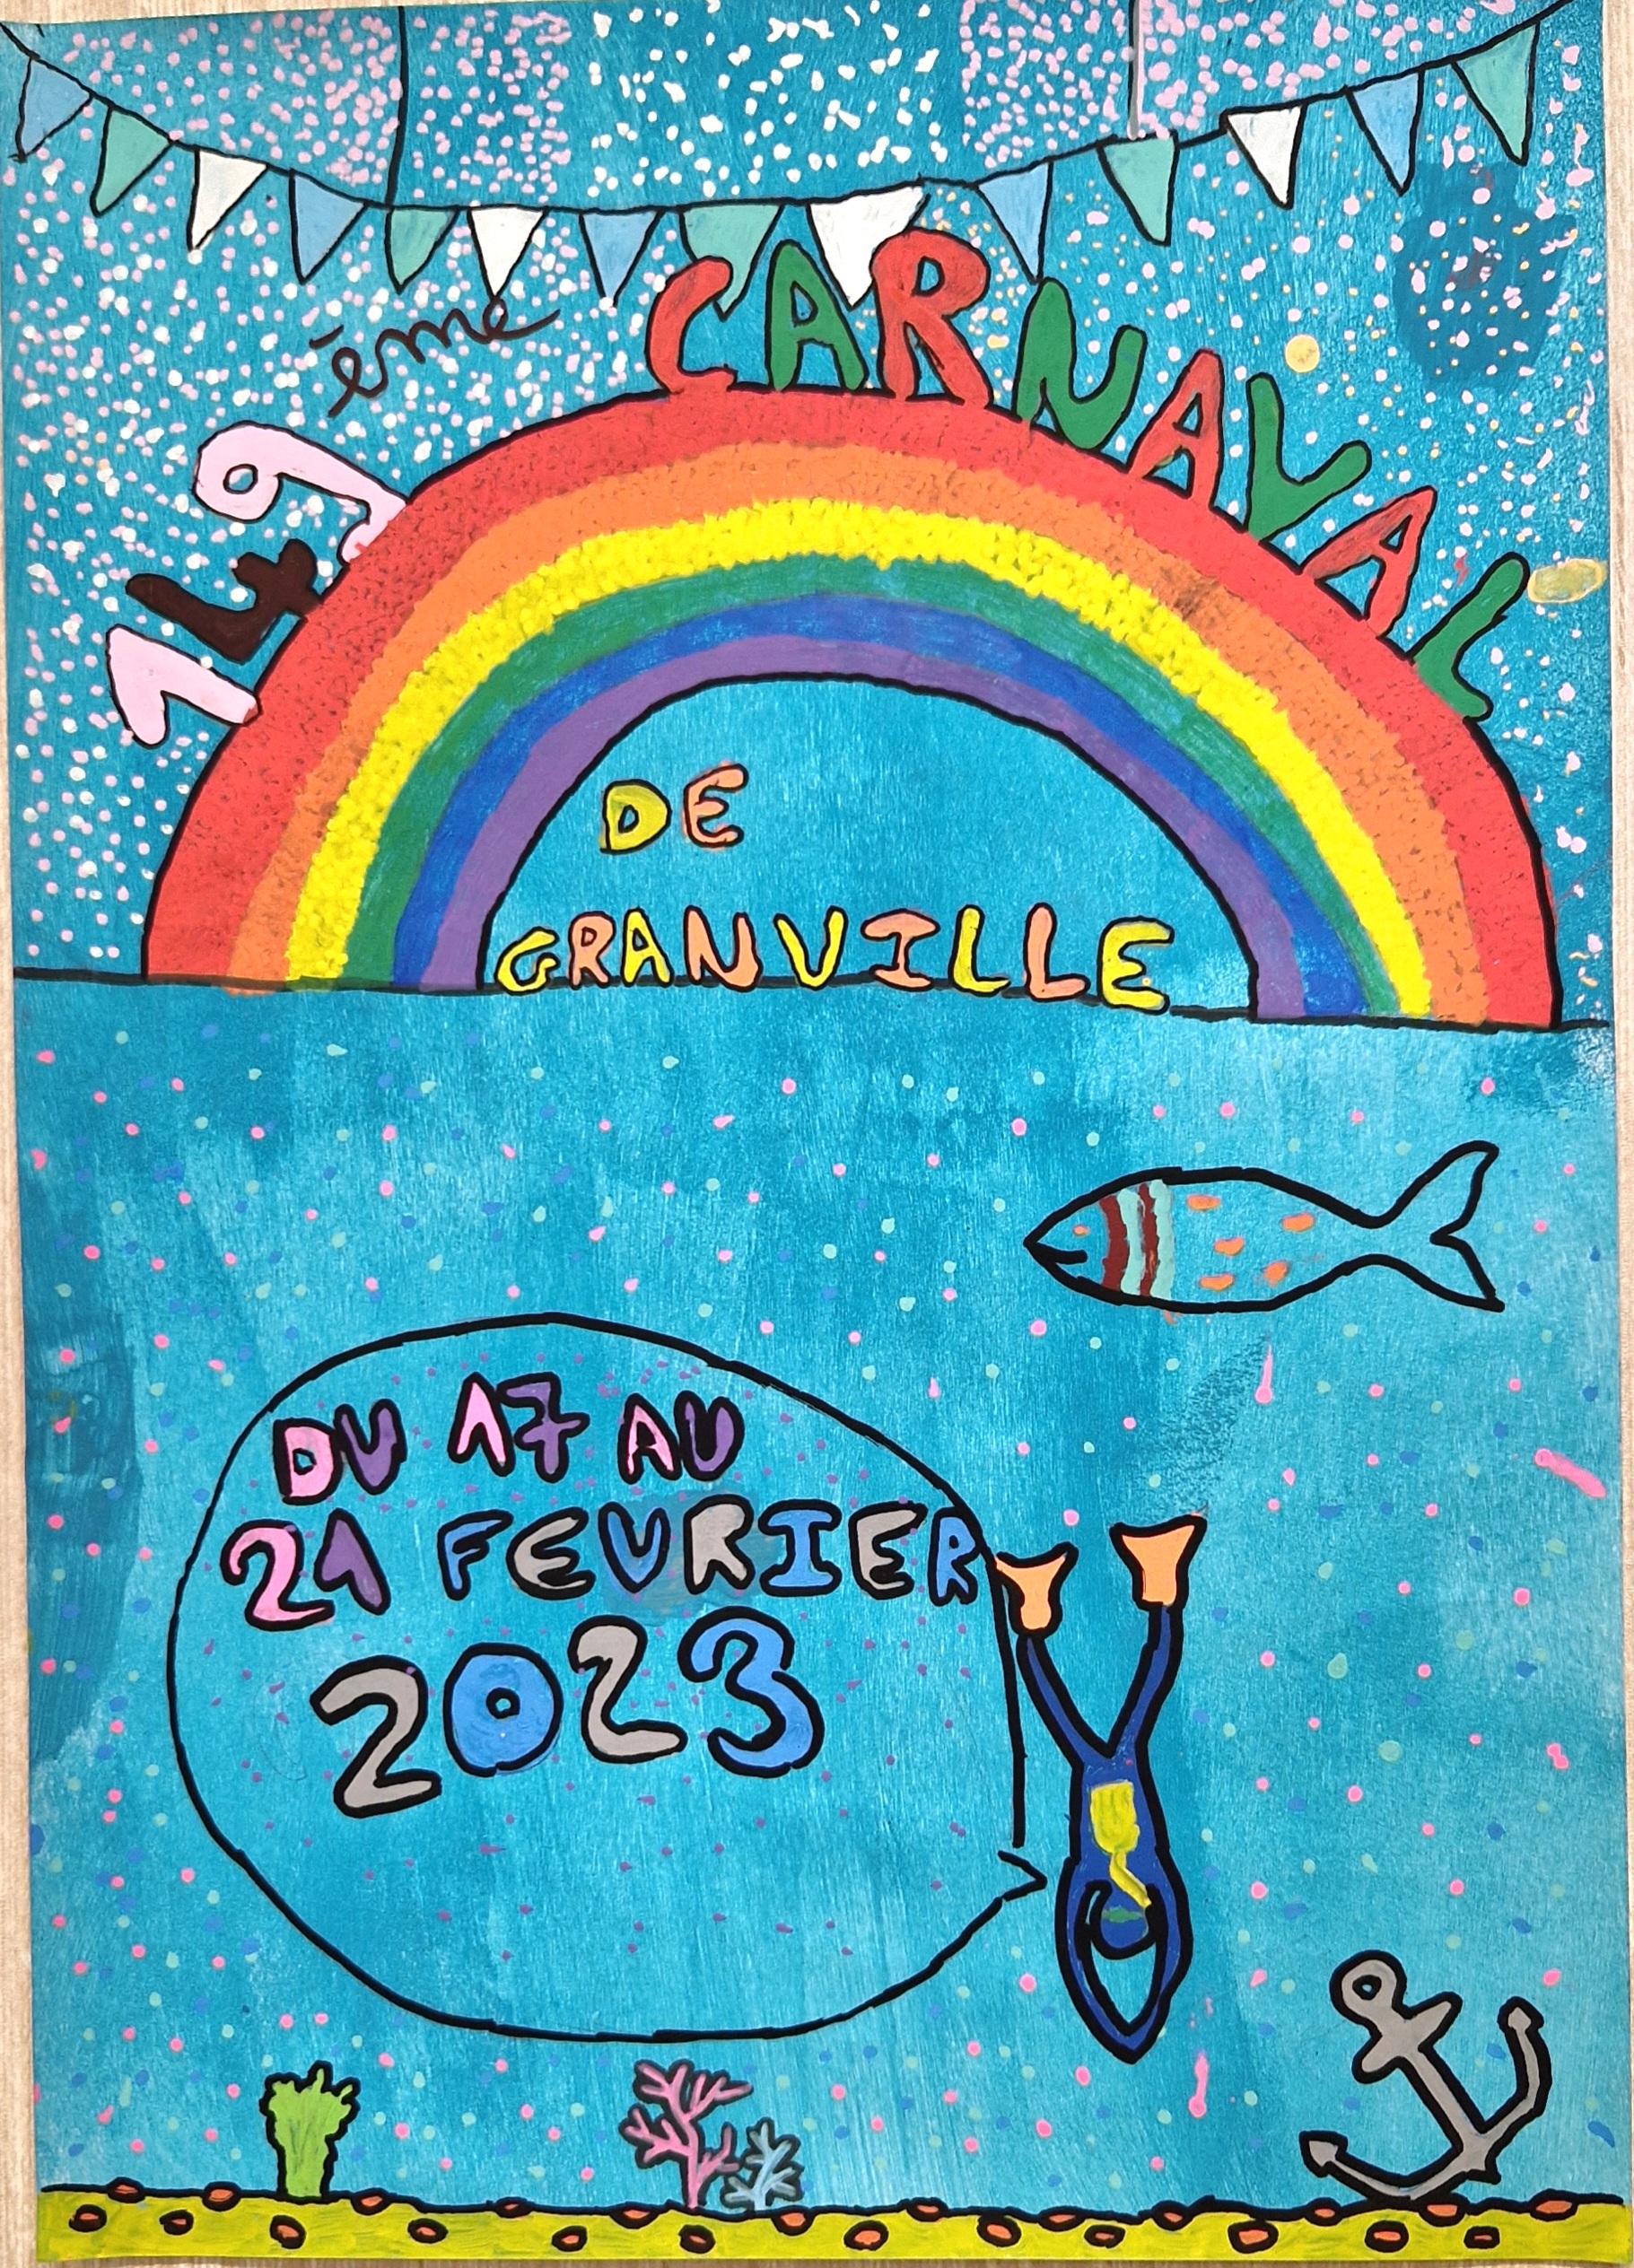 149ème CARNAVAL
DE
GRANVILLE
DU 17 AU
21 FEVRIER
2023